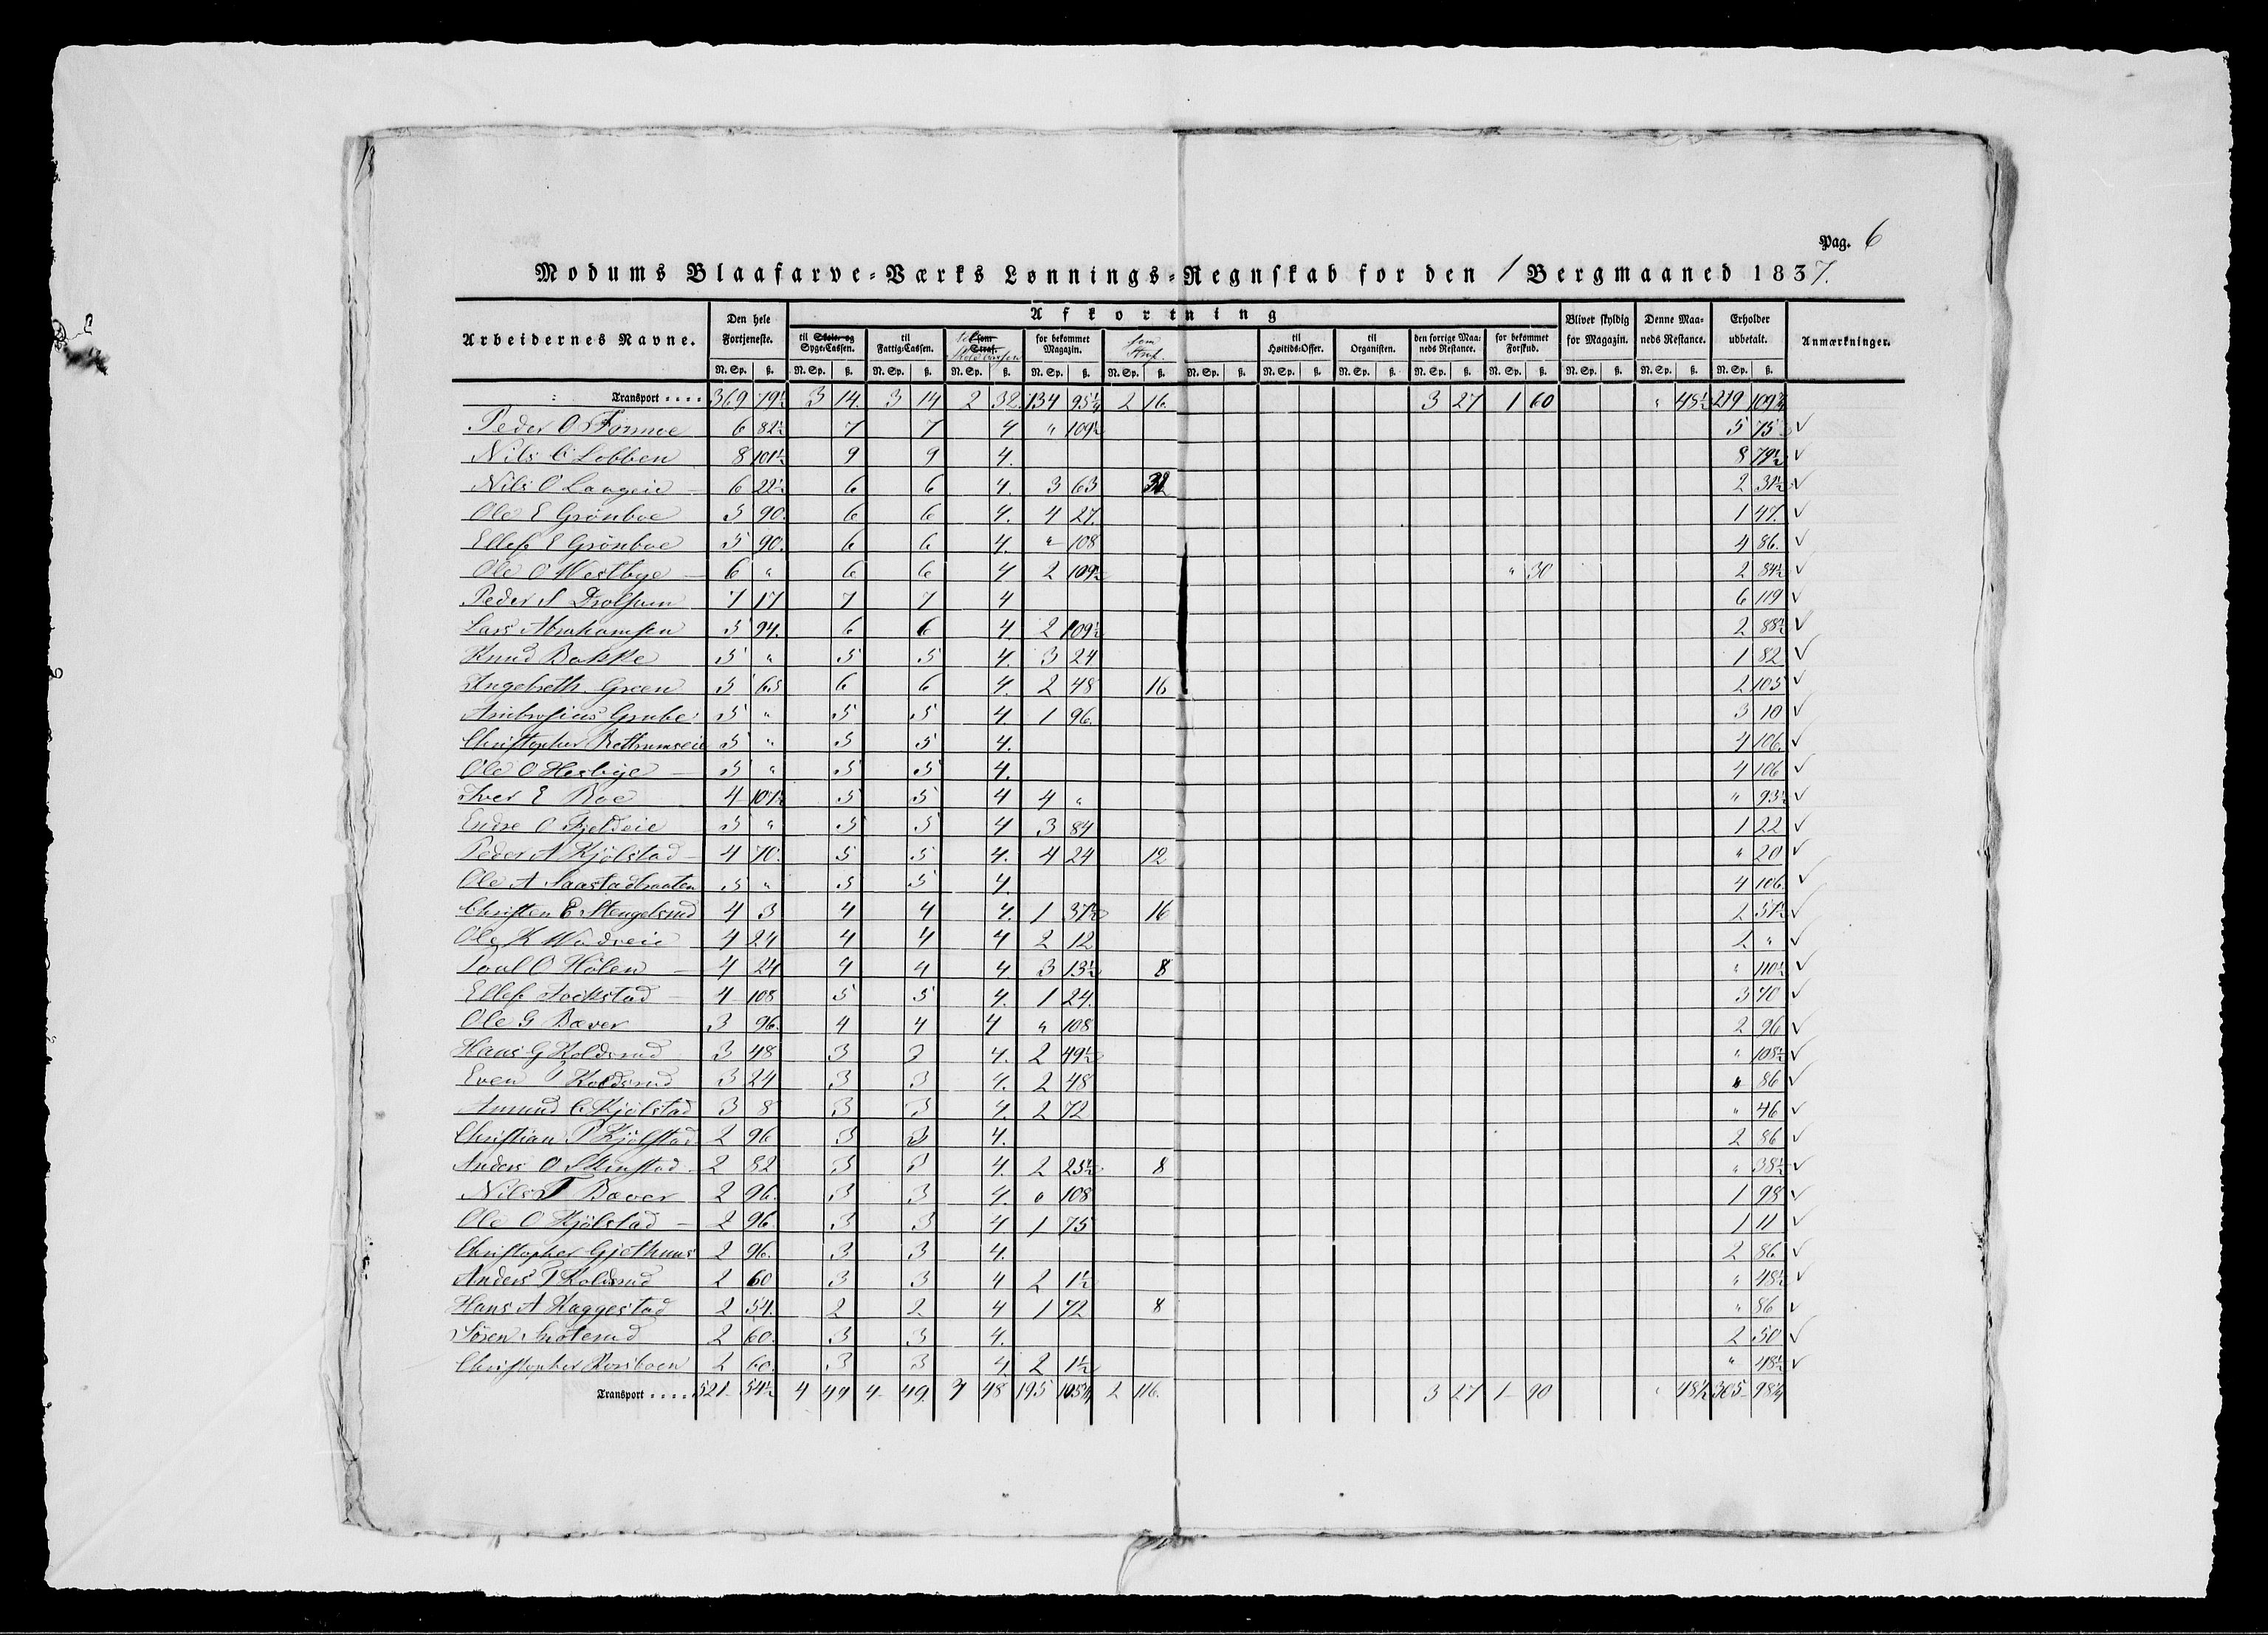 Pag. 6
Modums Blaafarve-Værks Lønnings-Regnskab for den 1 Bergmaaned 1837.
Arbeidernes Navne. Den hele Fortjeneste. Afkortning Bliver skyldig for Magazin. Denne Maaneds Restance. Erholder udbetalt. Anmærkninger.
til Skole- og Syge-Cassen. til Fattig-Cassen. til Som Straf. for bekommet Magazin. Som Straf. til Høitids-Offer. til Organisten. den forrige Maaneds Restance. for bekommet Forskud.
N. Sp. ß. N. Sp. ß. N. Sp. ß. N. Sp. ß. N. Sp. ß. N. Sp. ß. N. Sp. ß. N. Sp. ß. N. Sp. ß. N. Sp. ß. N. Sp. ß. N. Sp. ß. N. Sp. ß. N. Sp. ß.
Transport .... 369 79½ 3 14. 3 14 2 32. 134 95¼ 2 16. 3 27 1 60 " 48½ 219 109¾
Peder O Formoe 6 82½ 7 7 4 " 109½ 5 75 ✓
Nils C Lobben 8 101½ 9 9 4. 8 79½ ✓
Nils O Laageie 6 22½ 6 6 4. 3 63 32 2 31½ ✓
Ole E Grönboe 5 90. 6 6 4. 4 27. 1 47. ✓
Ellef E Grönboe 5 90. 6 6 4. " 108 4 86. ✓
Ole O Westbye 6 " 6 6 4 2 109½ " 30 2 84½ ✓
Peder S Drolsum 7 17 7 7 4 6 119 ✓
Lars Abrahamsen 5 94. 6 6 4. 2 109½ 2 88½ ✓
Knud Bakke 5 " 5 5 4. 3 24 1 82 ✓
Engebreth Green 5 65 6 6 4. 2 48 16 2 105 ✓
Ambrosius Grube 5 " 5 5 4. 1 96. 3 10 ✓
Christopher Rethrumseie 5 " 5 5 4. 4 106. ✓
Ole O Hesbye 5 " 5 5 4. 4 106 ✓
Iver E Boe 4 107½ 5 5 4 4 " " 93½ ✓
Endre O Fjeldeie 5 " 5 5 4 3 84 1 22 ✓
Peder A Kjölstad 4 70. 5 5 4. 4 24 12 " 20 ✓
Ole A Saastadbraaten 5 " 5 5 4. 4 106. ✓
Christen E Stengelsrud 4 3 4 4 4. 1 37½ 16 2 51½ ✓
Ole K Wadseie 4 24 4 4 4 2 12 2 " ✓
Poul O Hölen 4 24 4 4 4 3 13½ 8 " 110½ ✓
Ellef Sockstad 4 108 5 5 4. 1 24. 3 70 ✓
Ole G Bæver 3 96. 4 4 4 " 108 2 96 ✓
Hans G Koldsrud 3 48 3 3 4. 2 49½ " 108½ ✓
Even P Koldsrud 3 24 3 3 4. 2 48 " 86 ✓
Amund C Kjölstad 3 8 3 3 4. 2 72 " 46 ✓
Christian P Kjölstad 2 96 3 3 4. 2 86 ✓
Anders O Skinstad 2 82 3 3 4. 2 25½ 8 " 38½ ✓
Nils T Bæver 2 96. 3 3 4. " 108 1 98 ✓
Ole O Kjölstad 2 96. 3 3 4 1 75 1 11 ✓
Christopher Gjethuus 2 96. 3 3 4. 2 86 ✓
Anders P Koldsrud 2 60 3 3 4 2 1½ " 48½ ✓
Hans A Kaggestad 2 54. 2 2 4 1 72 8 " 86 ✓
Sören Snølerud 2 60. 3 3 4. 2 50 ✓
Christopher Korsboen 2 60. 3 3 4. 2 1½ " 48½ ✓
Transport .... 521 54½ 4 49 4 49. 3 48 195 105¾ 2 116. 3 27 1 90 " 48½ 305 98¼